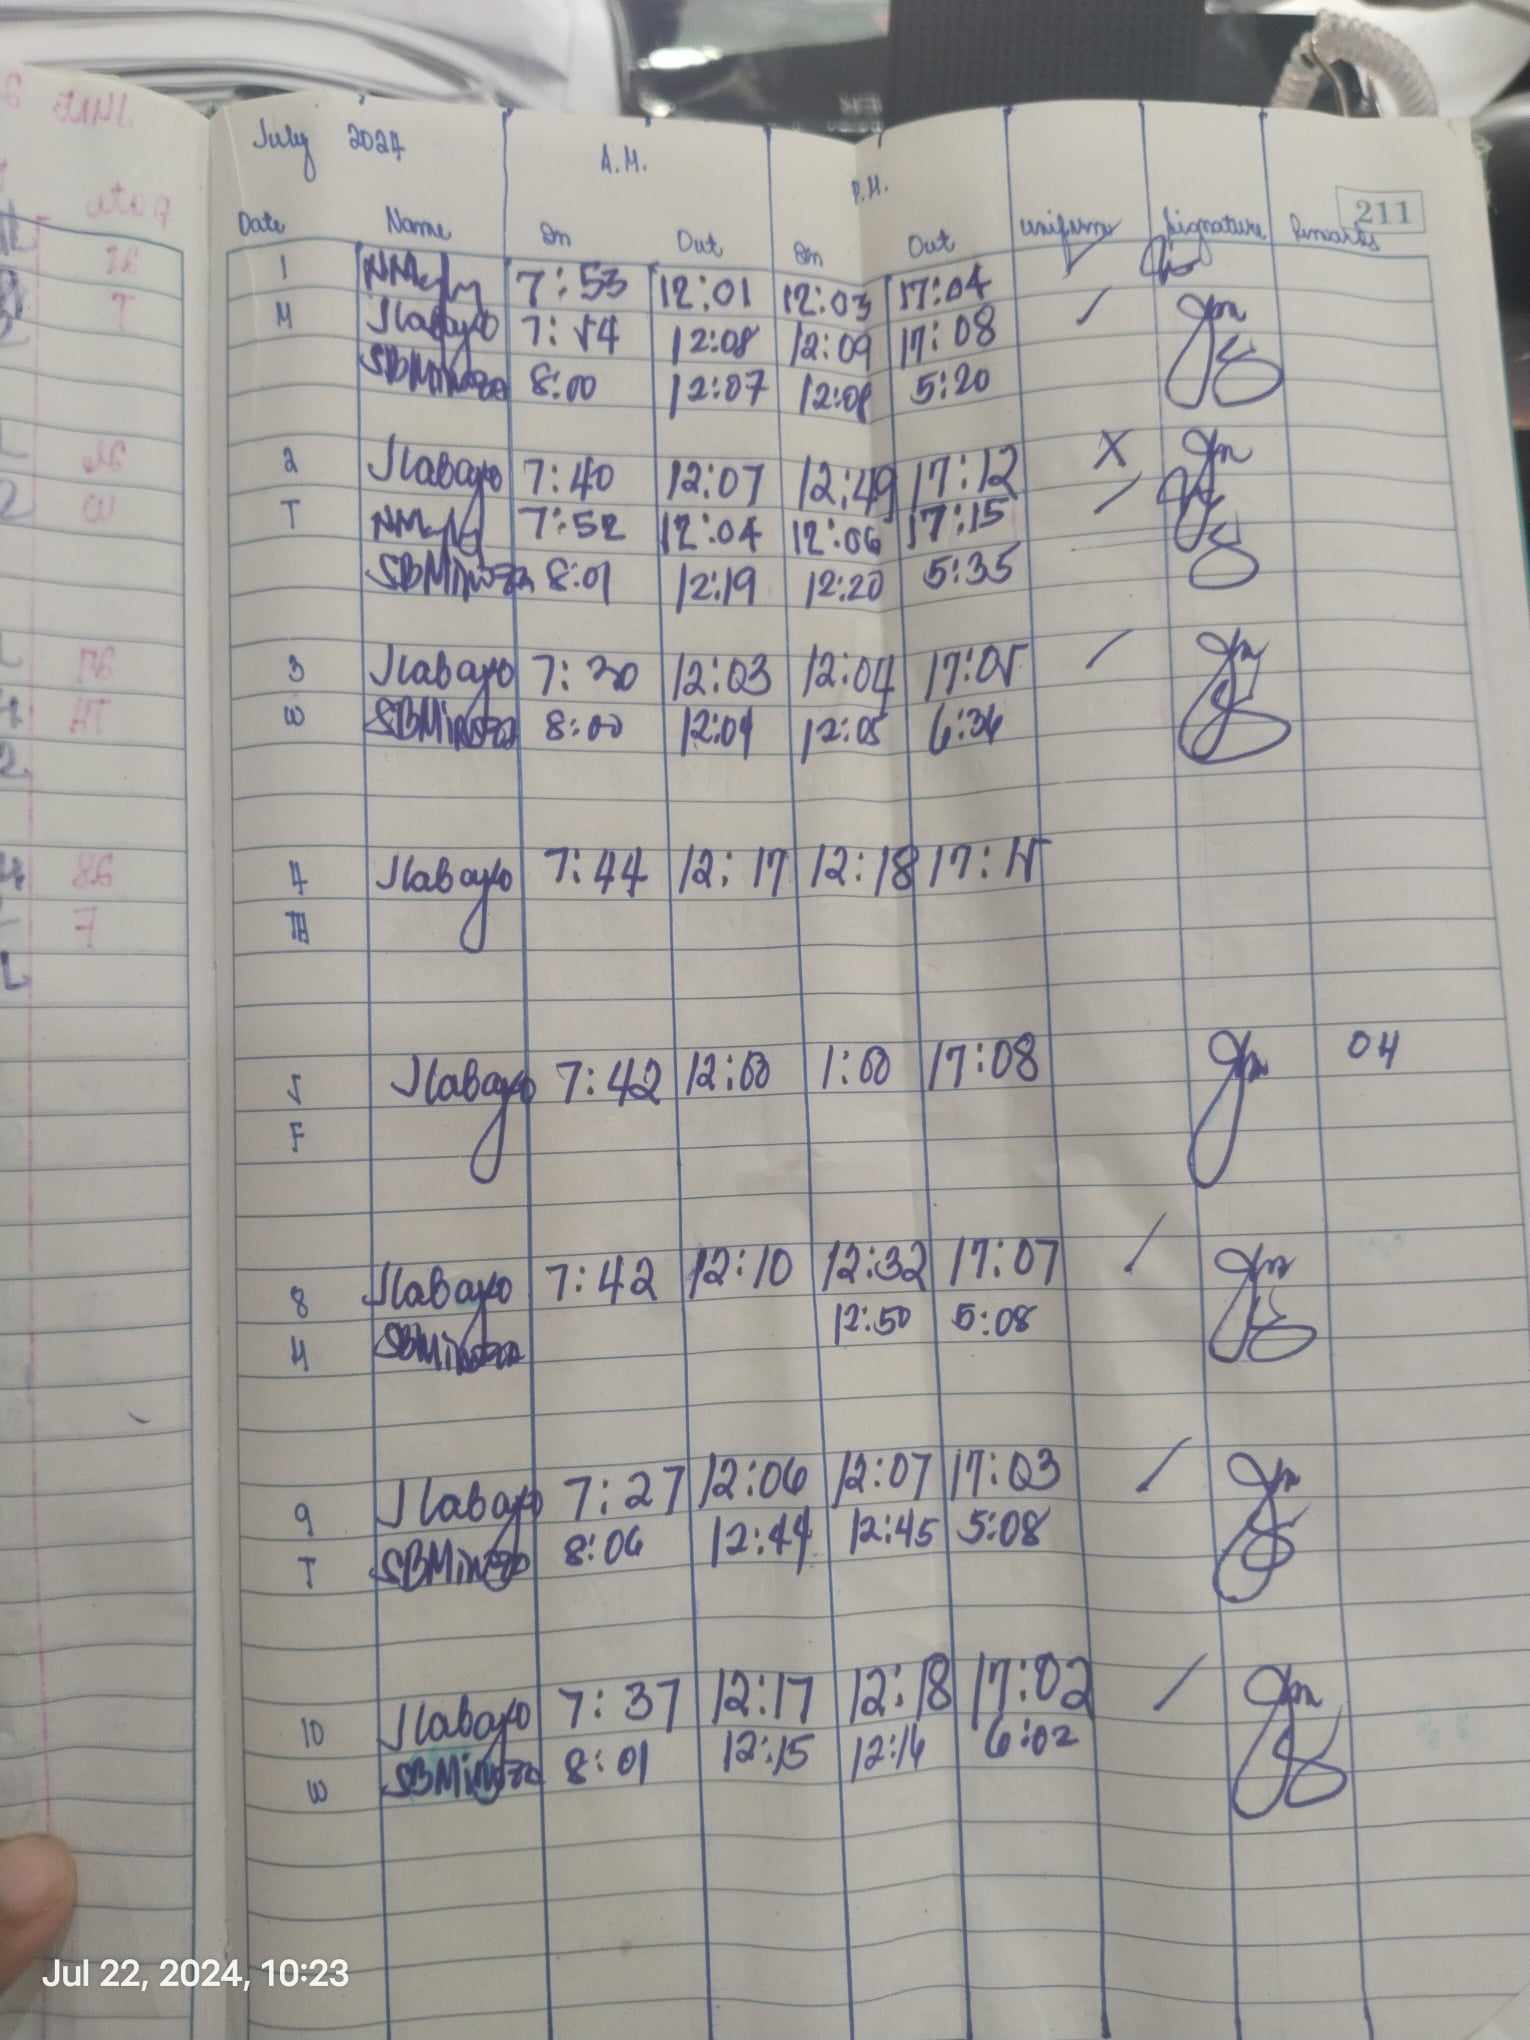 July 2024 A.M. P.M. 211
Date Name In Out In Out uniform Signature Remarks
1 7:53 12:01 12:03 17:04
M JLabayo 7:54 12:08 12:09 17:08
SBMinoza 8:00 12:07 12:08 5:20
2 JLabayo 7:40 12:07 12:49 17:12 X
T 7:52 12:04 12:06 17:15
SBMinoza 8:01 12:19 12:20 5:35
3 JLabayo 7:30 12:03 12:04 17:05
W SBMinoza 8:00 12:04 12:05 6:34
4 JLabayo 7:44 12:17 12:18 17:15
TH
5 JLabayo 7:42 12:00 1:00 17:08 04
F
8 JLabayo 7:42 12:10 12:32 17:07
M SBMinoza 12:50 5:08
9 JLabayo 7:27 12:06 12:07 17:03
T SBMinoza 8:06 12:44 12:45 5:08
10 JLabayo 7:37 12:17 12:18 17:02
W SBMinoza 8:01 12:15 12:16 6:02
Jul 22, 2024, 10:23